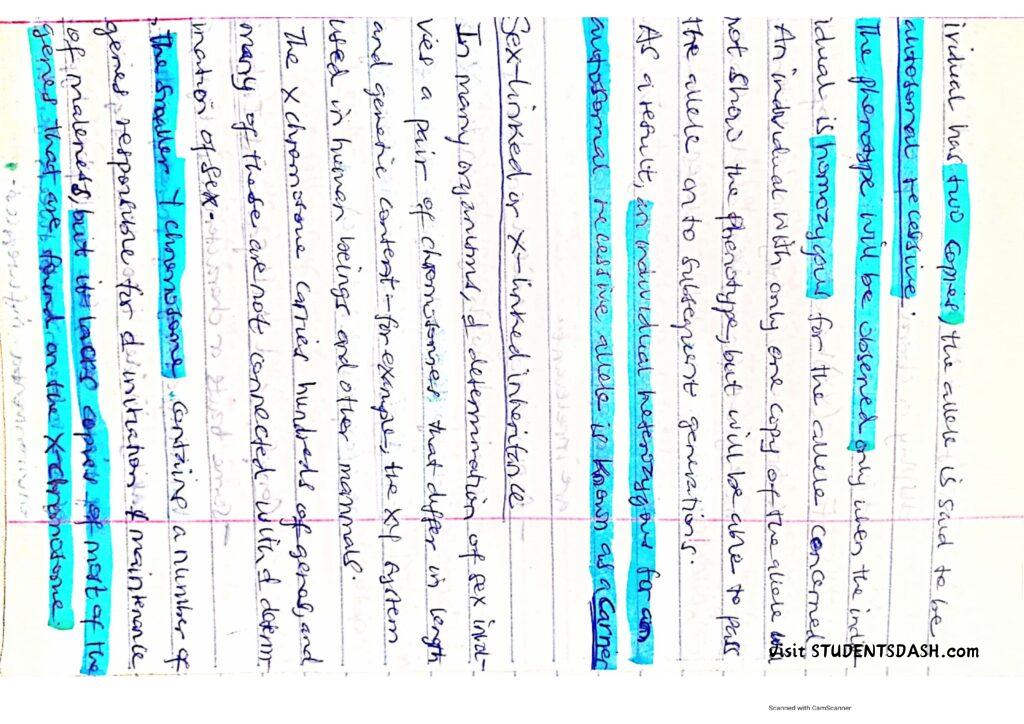 ividual has two copies, the allele is said to be
autosomal recessive.
The phenotype will be observed only when the indiv-
idual is homozygous for the allele concerned
An individual with only one copy of the allele will
not show the phenotype, but will be able to pass
the allele on to subsequent generations.
As a result, an individual heterozygous for an
autosomal recessive allele is known as a carrier
Sex-linked or X-linked inheritance
In many organisms, d determination of sex invol-
ves a pair of chromosomes that differ in length
and genetic content - for example, the XY system
used in human beings and other mammals.
The X chromosome carries hundreds of genes, and
many of these are not connected with d determ-
ination of sex.
The smaller Y chromosome contains a number of
genes responsible for d initiation & maintenance
of maleness, but it lacks copies of most of the
genes that are found on the X chromosome
Visit STUDENTSDASH.com
Scanned with CamScanner